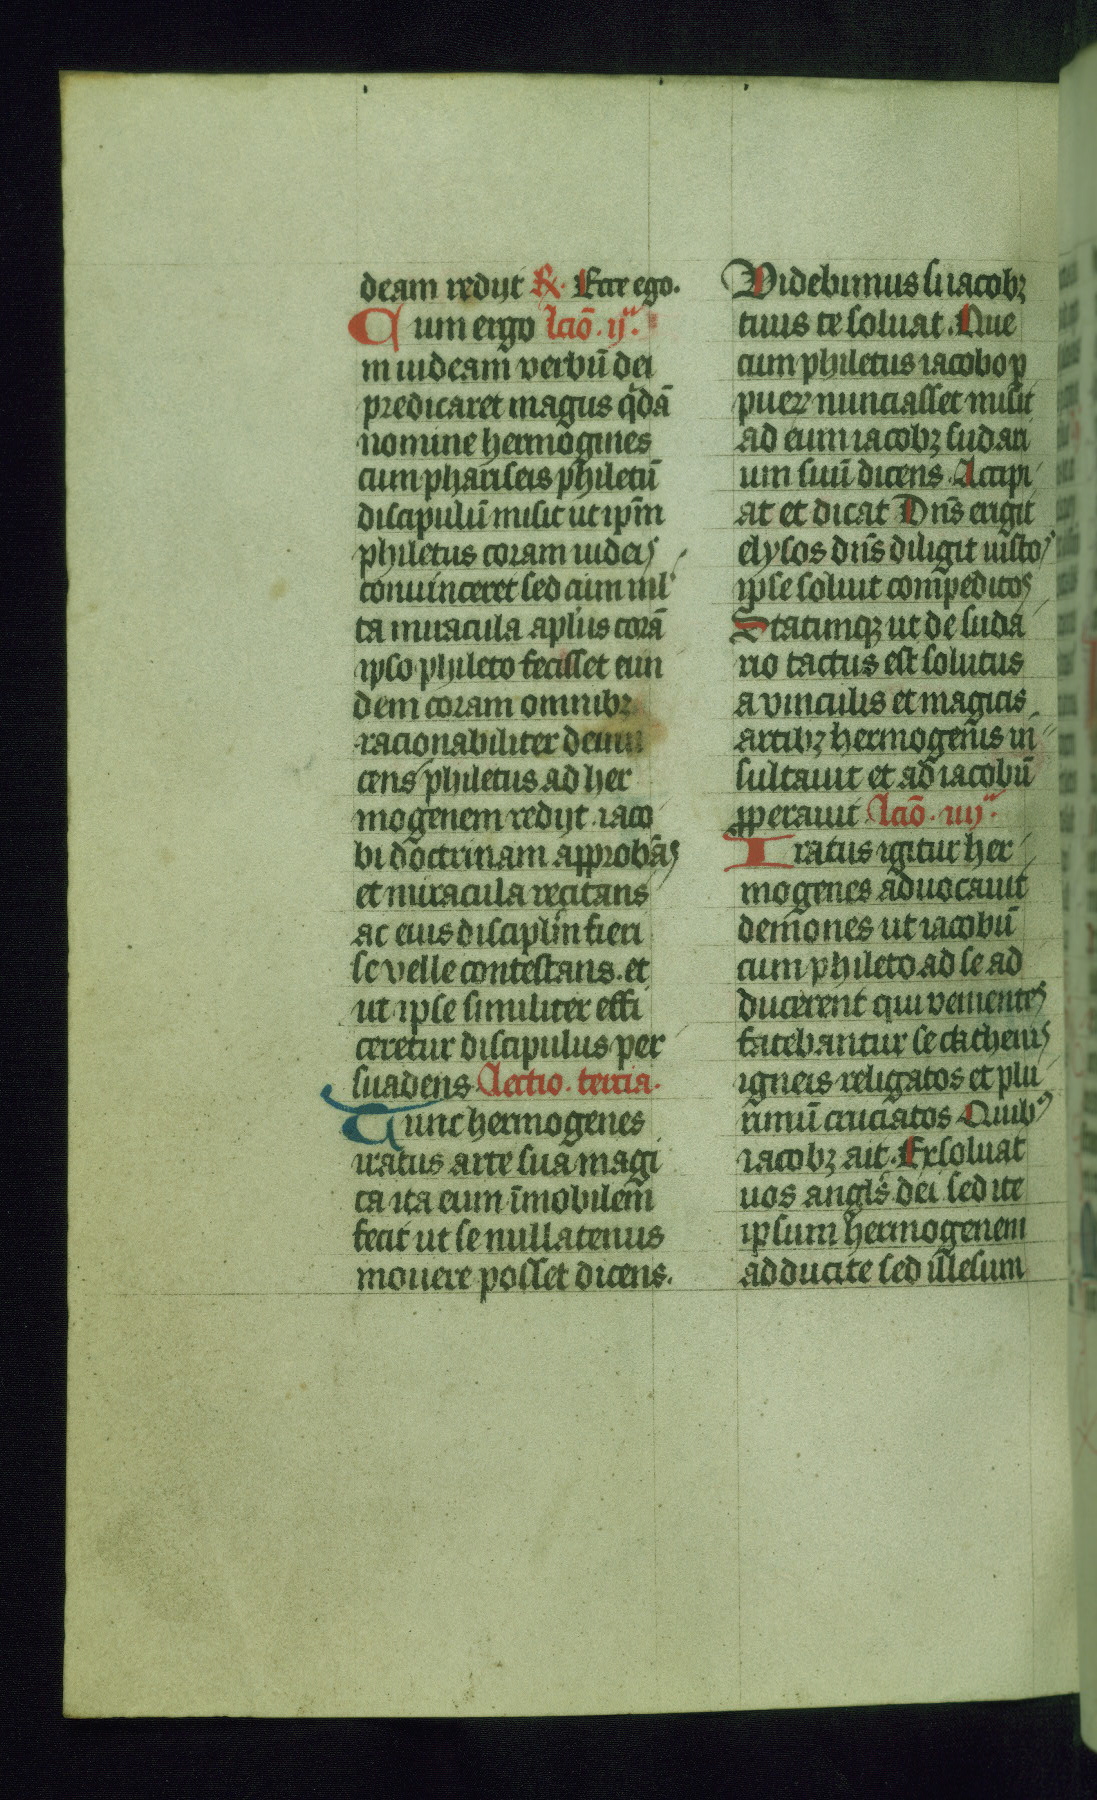 deam redijt R. Ecce ego.
Cum ergo lcio. ij.a
in iudeam verbū dei
predicaret magus qdā
nomine hermogines
cum phariseis philetū
discipulū misit ut ipm̄
philetus coram iudeis
convinceret sed cum mł
ta miracula aplus corā
ipso phileto fecisset eun
dem coram omnibꝫ
racionabiliter devin
cens philetus ad her
mogenem redijt iaco
bi doctrinam approbās
et miracula recitans
ac eius disciplin̄ fieri
se velle contestans. et
ut ipse similiter effi
ceretur discipulus per
suadens Lectio. tercia.
Tunc hermogenes
iratus arte sua magi
ca ita eum īmobilem
fecit ut se nullatenus
movere posset dicens.
Videbimus si iacobꝫ
tuus te soluat. Que
cum philetus iacobo p̱
puerꝝ nunciasset misit
ad eum iacobꝫ sudari
um suū dicens. Accipi
at et dicat Dn̄s erigit
elysos dn̄s diligit iustos
ipse soluit compeditos
Statimqꝫ ut de suda
rio tactus est solutus
a vinculis et magicis
artibꝫ hermogenis in
sultauit et ad iacobū
pperauit Lcio. iiij.a
Iratus igitur her
mogenes aduocauit
demones ut iacobū
cum phileto ad se ad
ducerent qui venientes
fatebantur se cathenis
igneis religatos et plu
rimū cruciatos Quibꝰ
iacobꝫ ait. Exsoluat
vos angls dei sed ite
ipsum hermogenem
adducite sed illesum